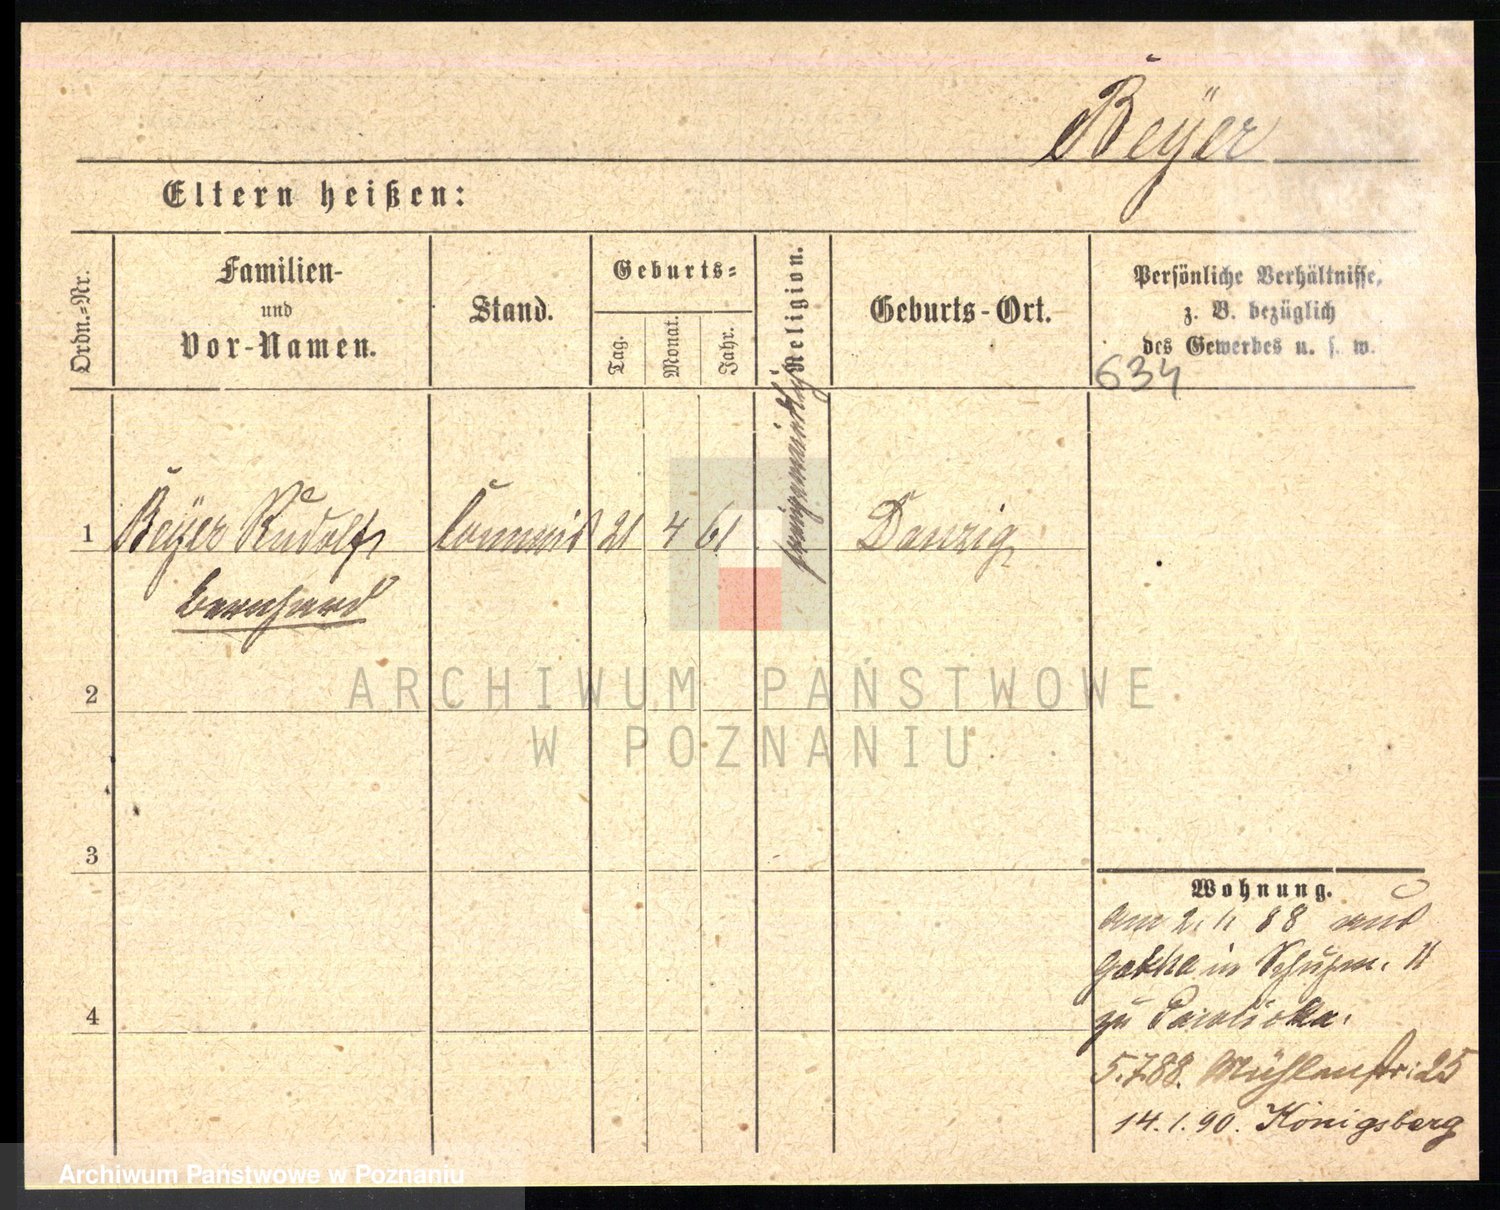 Beÿer
Eltern heißen:
Ordn.=Nr.
Familien-
und
Vor-Namen.
Stand.
Geburts=
Tag.
Monat.
Jahr.
Religion.
Geburts-Ort.
Persönliche Verhältnisse,
z. B. bezüglich
des Gewerbes u. s. w.
634
1 Beÿer Rudolf Commis 21 4 61 Danzig
Bernhard
2
3
4
Wohnung.
am 2. 1. 88 aus
Gotha in
zu
5.7.88. Mühlenstr: 25
14. 1. 90. Königsberg
ARCHIWUM PAŃSTWOWE
W POZNANIU
Archiwum Państwowe w Poznaniu